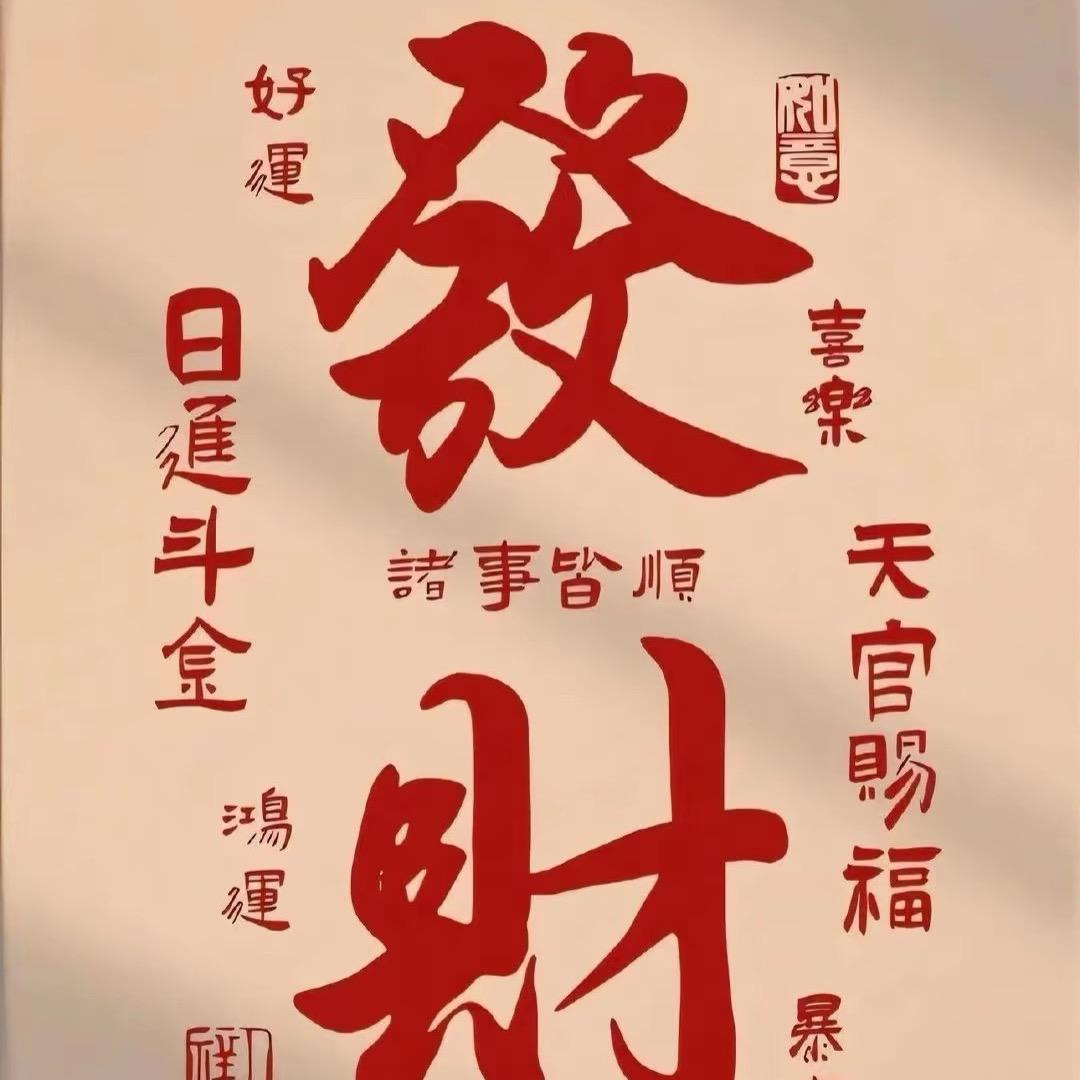 發財
好運
如意
喜樂
日進斗金
諸事皆順
天官賜福
鴻運
暴